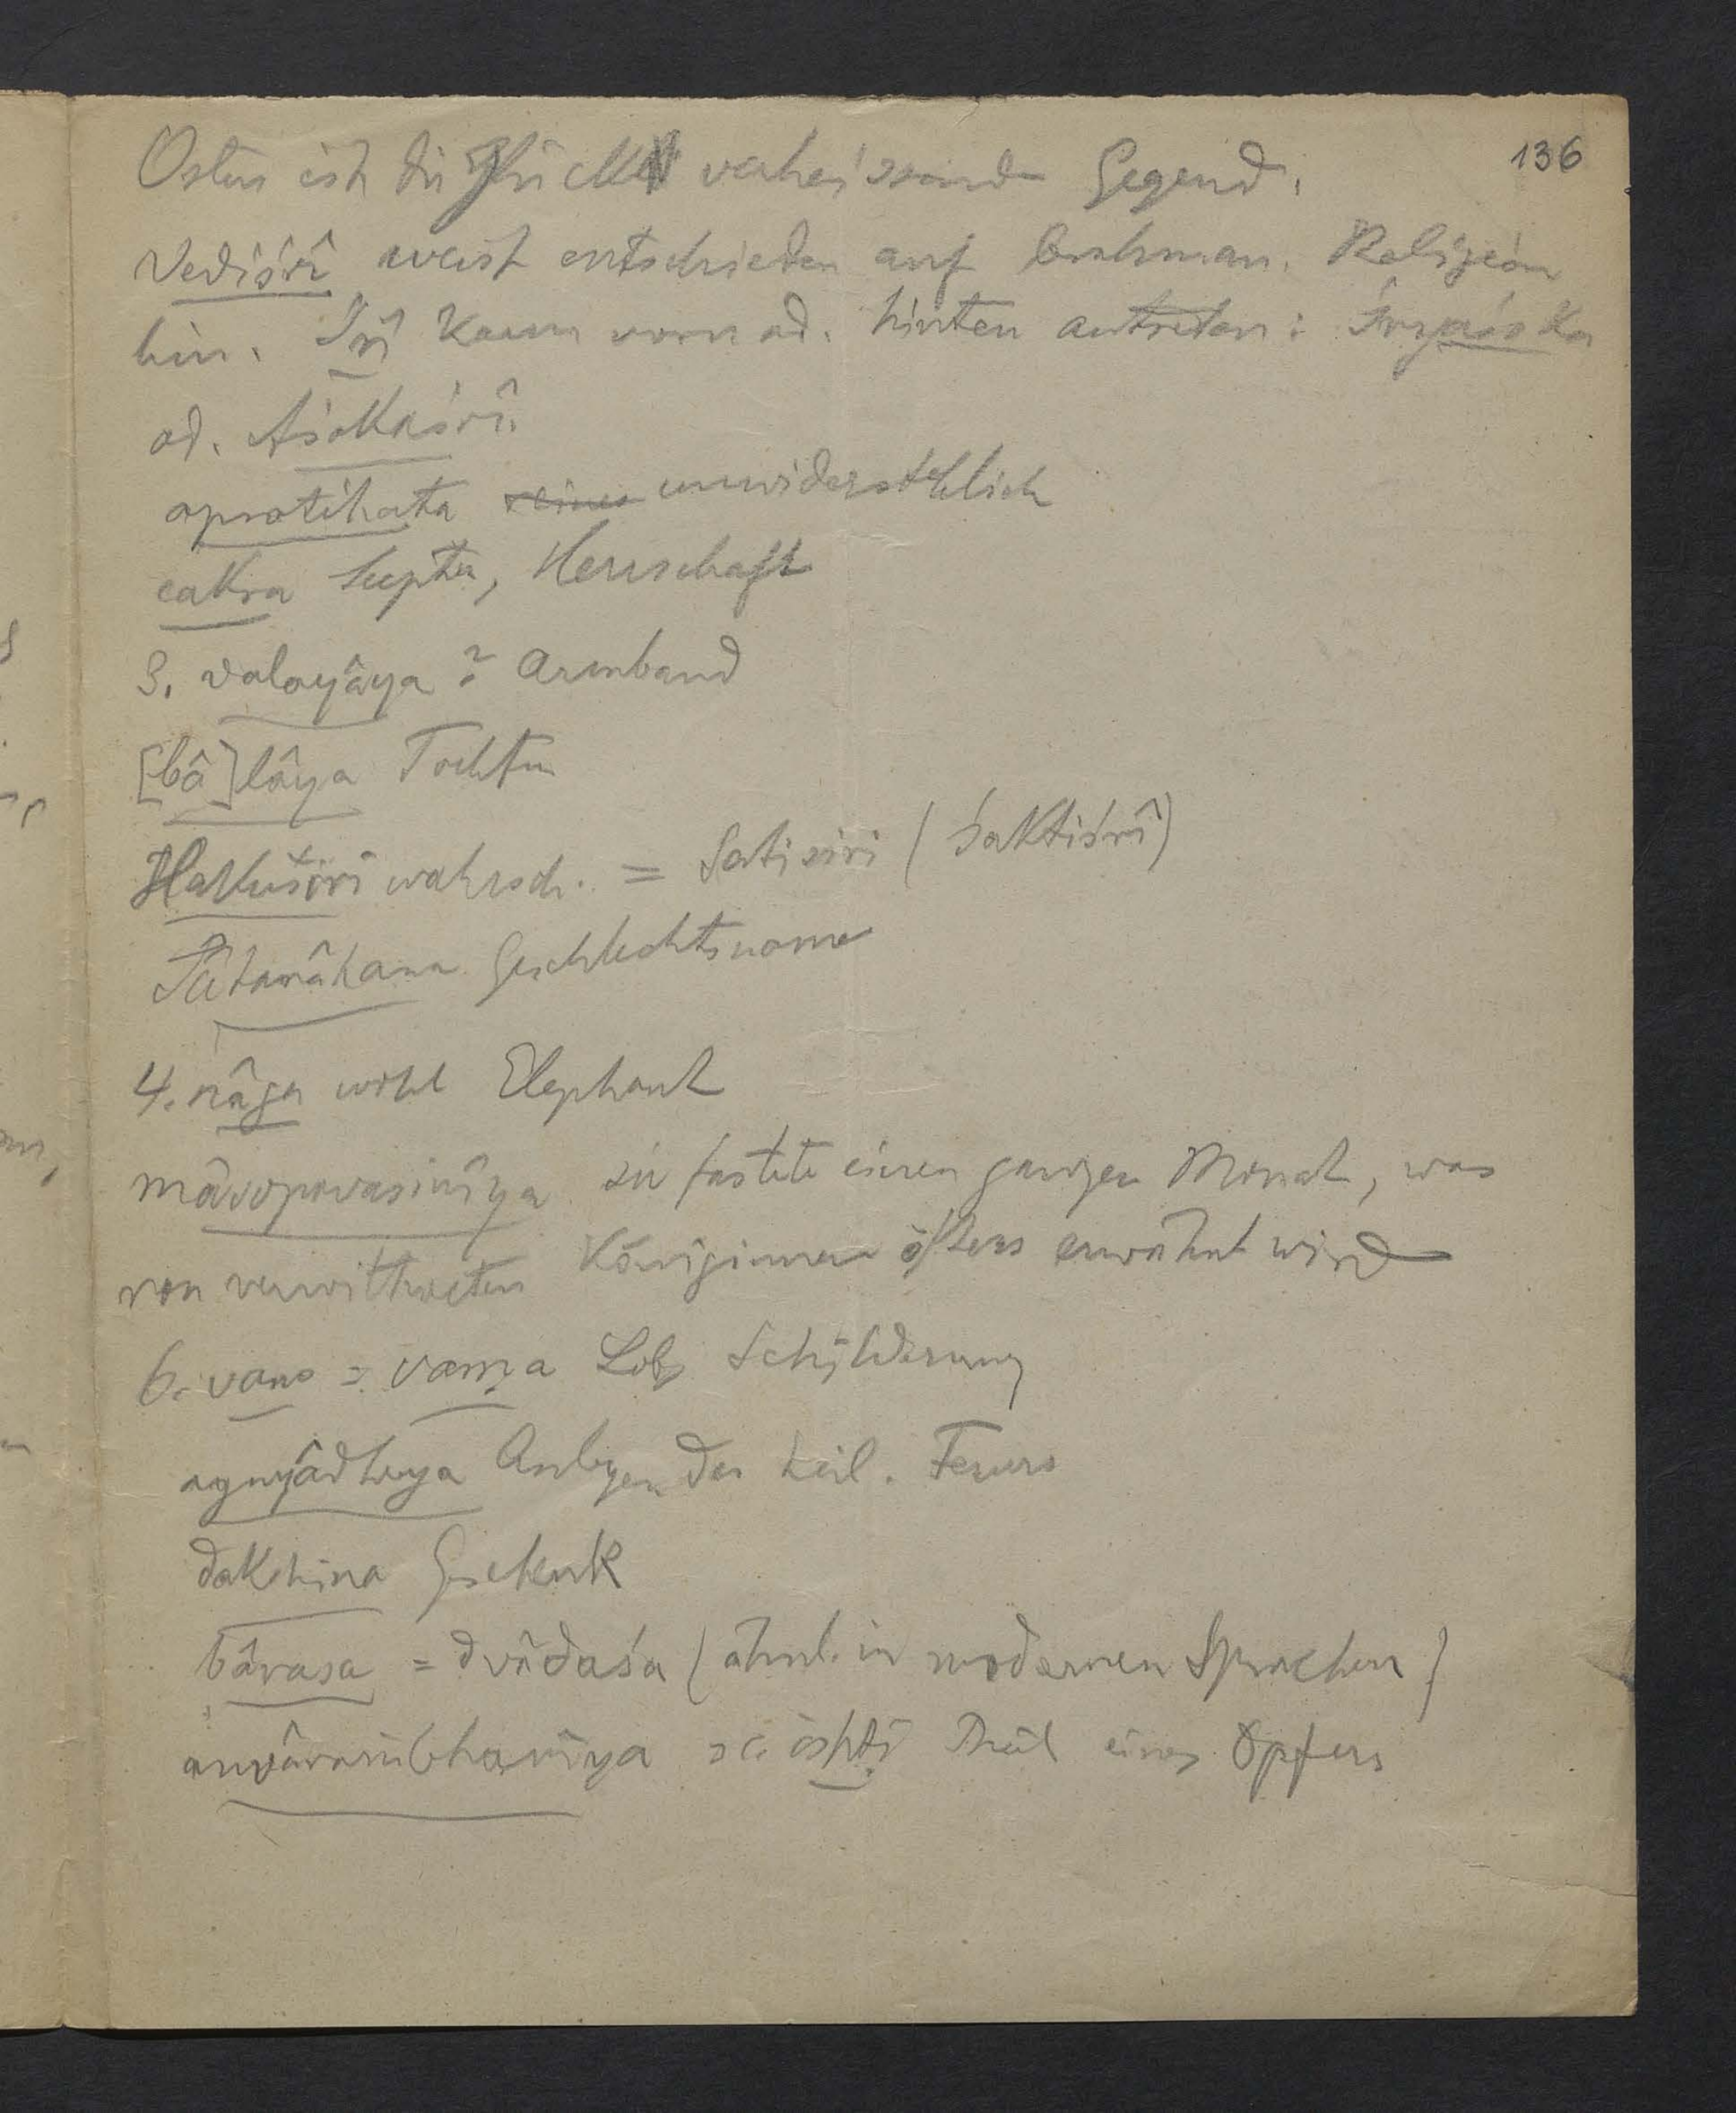 136
Osten ist die Glück verheissende Gegend.
Vediśrî weist entschieden auf brahman. Religion
hin. Śrî kann vorn od. hinten antreten: Śryaśoka
od. Aśokaśrî.
apratihata unwiderstehlich
cakra Scepter, Herrschaft
3. valayâya? Armband
[bâ]lâya Tochter
Hakusiri wahrsch. = Satisiri (Śaktiśrî)
Sâtavâhana Geschlechtsname
4. nâga wohl Elephant
mâsopavasinîya sie fastete einen ganzen Monat, was
von verwittweten Königinnen öfters erwähnt wird
6. vano = varṇa Lob, Schilderung
agnyâdheya Anlegen des heil. Feuers
dakshina Geschenk
bârasa = dvâdaśa (ähnl. in modernen Sprachen)
anvârambhanîya sc. ishṭi Theil eines Opfers